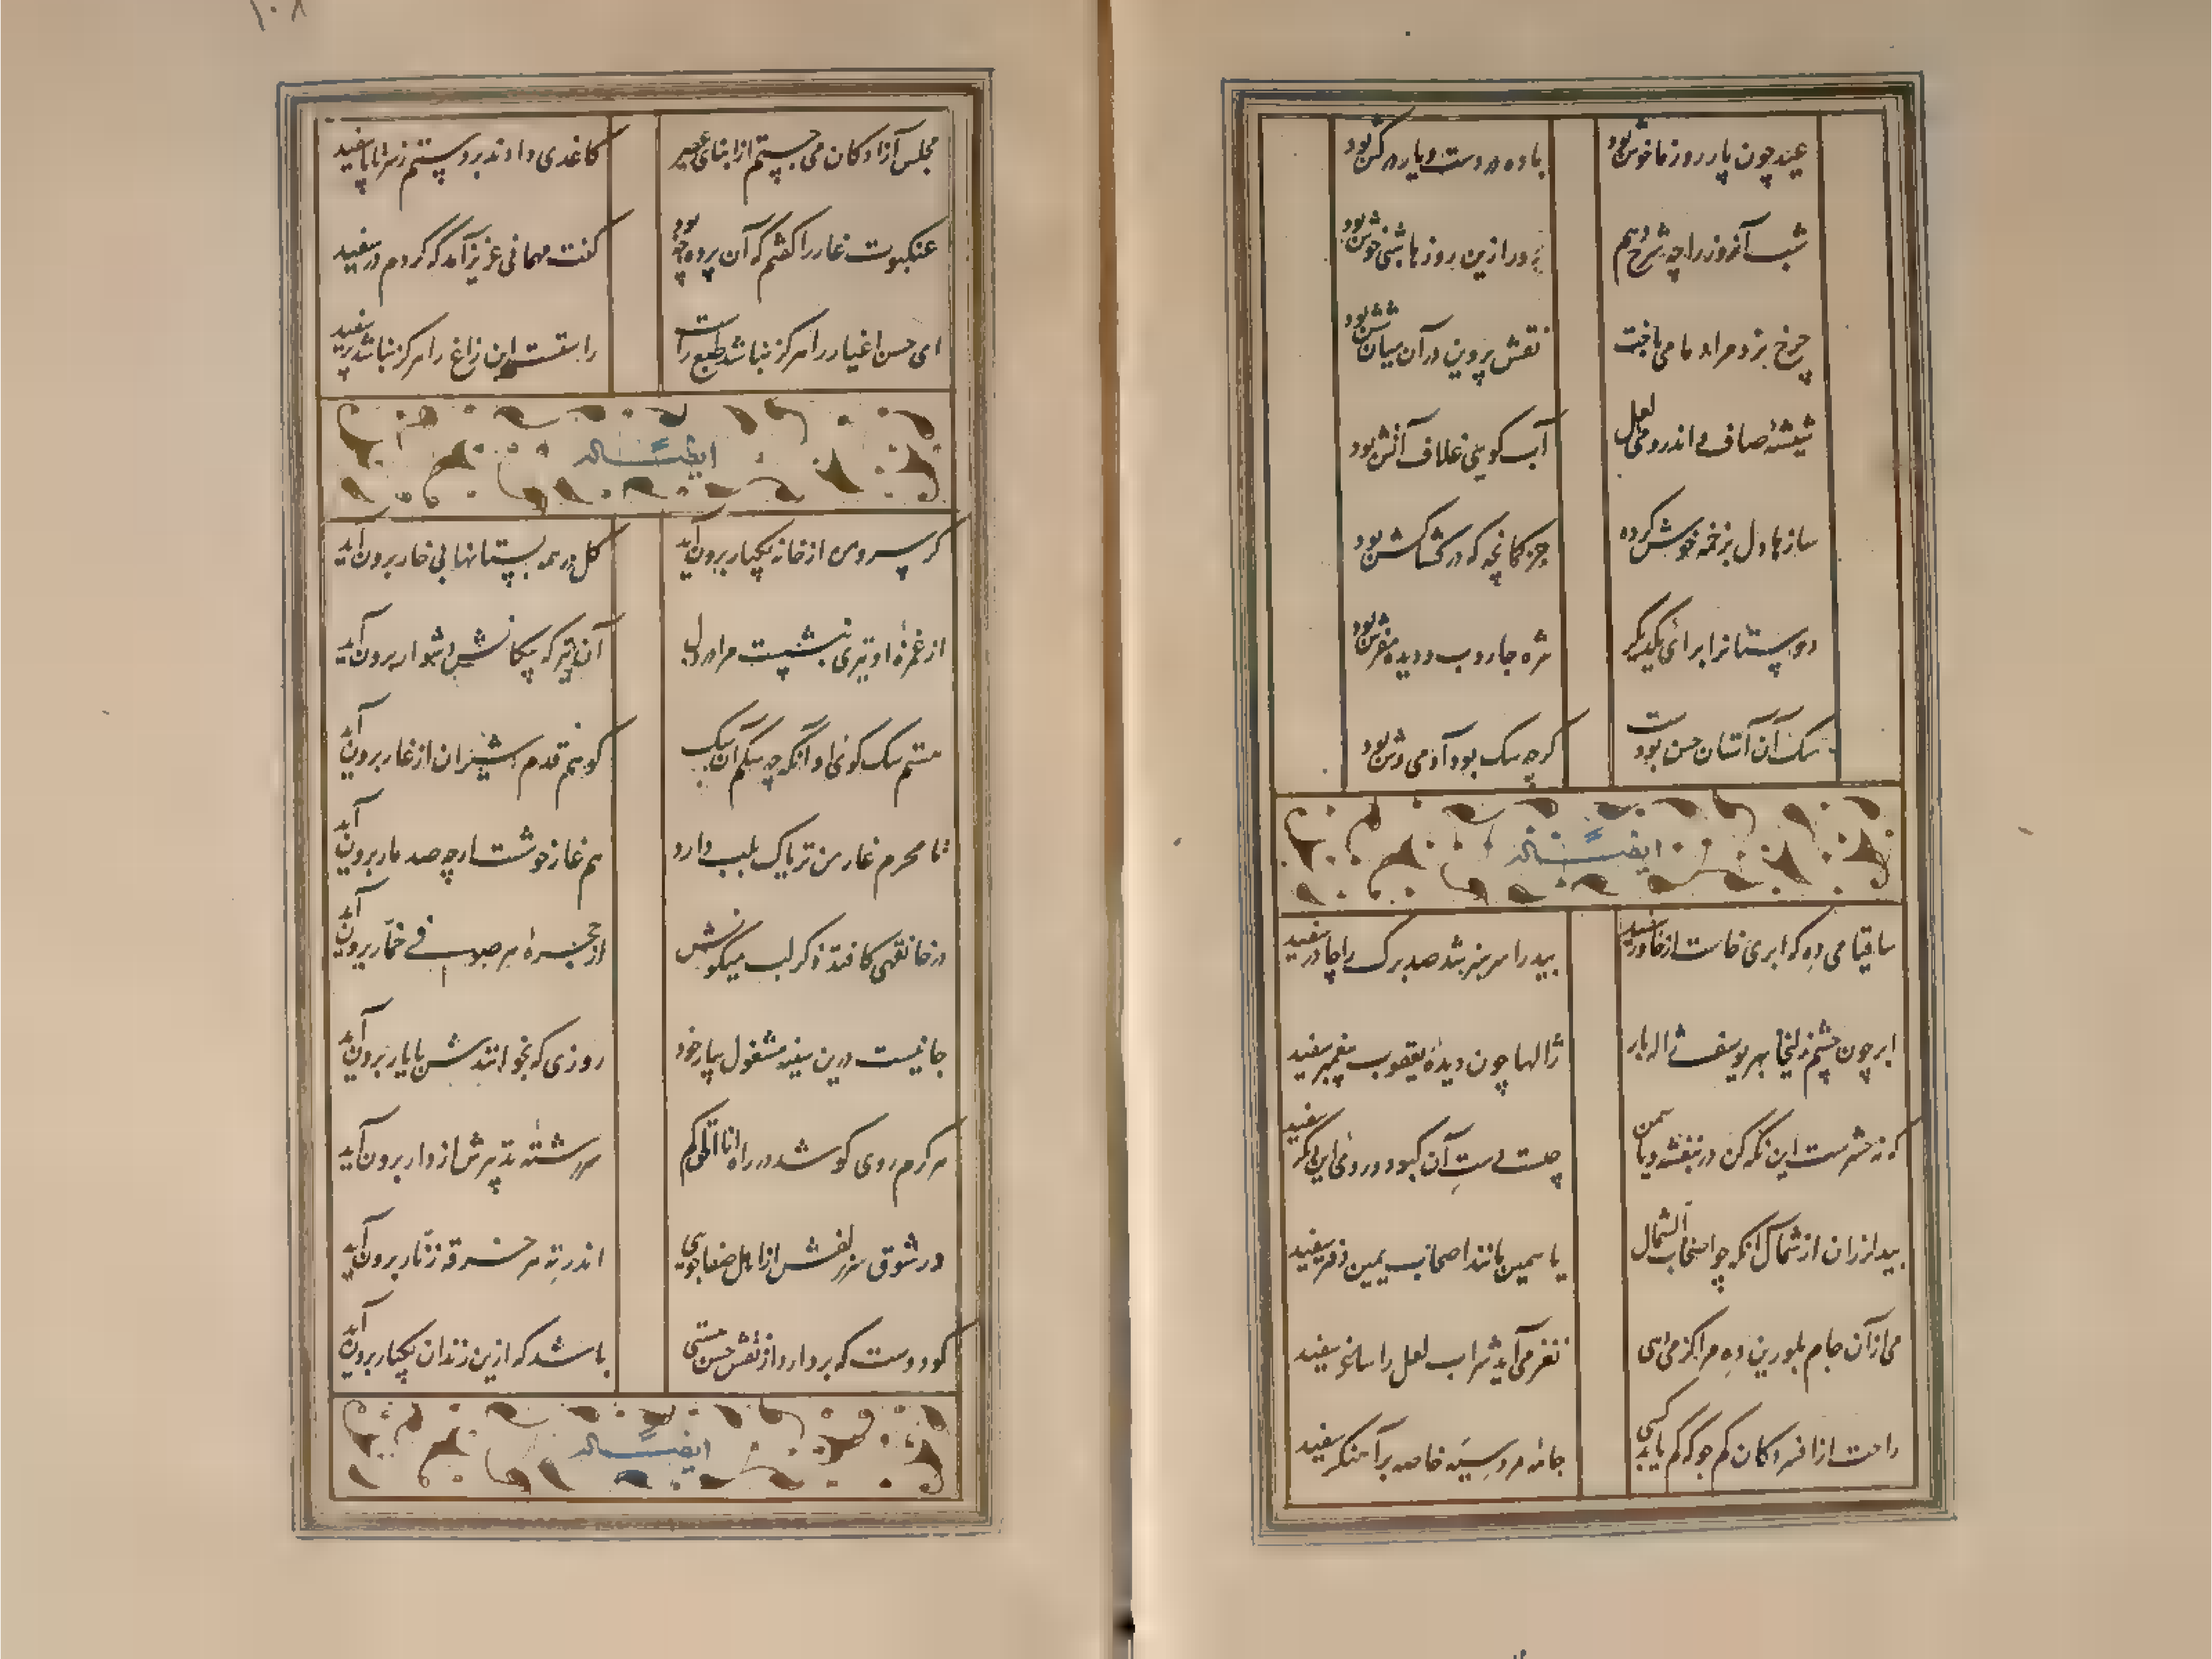 عید چون پار روز ما خوش بود    باده در دست و یار در کش بود
شب آنروز را چه شرح دهم    دور ازین روزها شبی خوش بود
چرخ نرد مراد ما می باخت    نقش پروین در آن میان شش بود
شیشهٔ صاف و اندرو می لعل    آب گویی غلاف آتش بود
سازها دل بزخمه خوش کرده    جز کمانچه که در کشاکش بود
دوستانرا برای یکدیگر    مژه جاروب و دیده مفرش بود
سک آن آستان حسن بودست    کرچه سک بود آدمی وش بود
ایضاً له
ساقیا می ده که ابری خاست از خاور سفید    بید را سرسبز شد صدبرک را چادر سفید
ابر چون چشم زلیخا بهر یوسف ژاله بار    ژالها چون دیدهٔ یعقوب پیغمبر سفید
این نکه کن در بنفشه و یا سمن    آن کبود و روی این یکسر سفید
بید لرزان از شمال آنکه چو اصحاب الشمال    یاسمین مانند اصحاب یمین دفتر سفید
می از آن جام بلورین ده مرا کز می نهی    نغز می آید شراب لعل را ساغر سفید
راحت از افسردکان کم جو که کم یابد کسی    جامه مردسیه خاصه بر آهنکر سفید
۱۰۸
مجلس آزادکان می جستم از ابنای عصر    کاغدی دادند بر دستم ز سر تا پا سفید
عنکبوت غار را گفتم که آن پرده چه بود    گفت مهمانی عزیز آمد که کردم در سفید
ای حسن اغیار را هرکز نباشد طبع راست    راستست این زاغ را هرکز نباشد پر سفید
ایضاً له
کر سرو من از خانه یکبار برون آید    کل در همه بستانها بی خار برون آید
از غمزهٔ او تیری بنشست مرا در دل    آن تیر که پیکانش دشوار برون آید
هستم سک کوی او آنکه چه سکم آن سک    کو هم قدم شیران از غار برون آید
تا محرم غار من تریاک بلب دارد    هم غار خوشست ارچه صد مار برون آید
در خانقهی کافتد ذکر لب میکونش    از حجرهٔ هر صوفی خمار برون آید
جا نیست درین سینه مشغول بیار خود    روزی که بخوانندش با یار برون آید
هر کرم روی کو شد در راه انا اعلم کم    سررشتهٔ تدبیرش از دار برون آید
در شوق سر زلفش از اهل صفا جویی    اندر ته هر خرقه زنار برون آید
کو دوست که بردارد از نقش حسن هستی    باشد که ازین زندان یکبار برون آید
ایضاً له